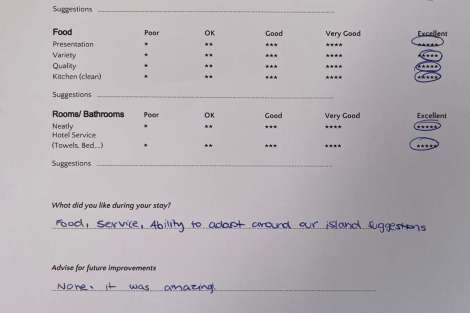 Suggestions
Food Poor OK Good Very Good Excellent
Presentation * ** *** **** *****
Variety * ** *** **** *****
Quality * ** *** **** *****
Kitchen (clean) * ** *** **** *****
Suggestions
Rooms/ Bathrooms Poor OK Good Very Good Excellent
Neatly * ** *** **** *****
Hotel Service
(Towels, Bed...) * ** *** **** *****
Suggestions
What did you like during your stay?
Food, Service, Ability to adapt around our island suggestions
Advise for future improvements
None, it was amazing!